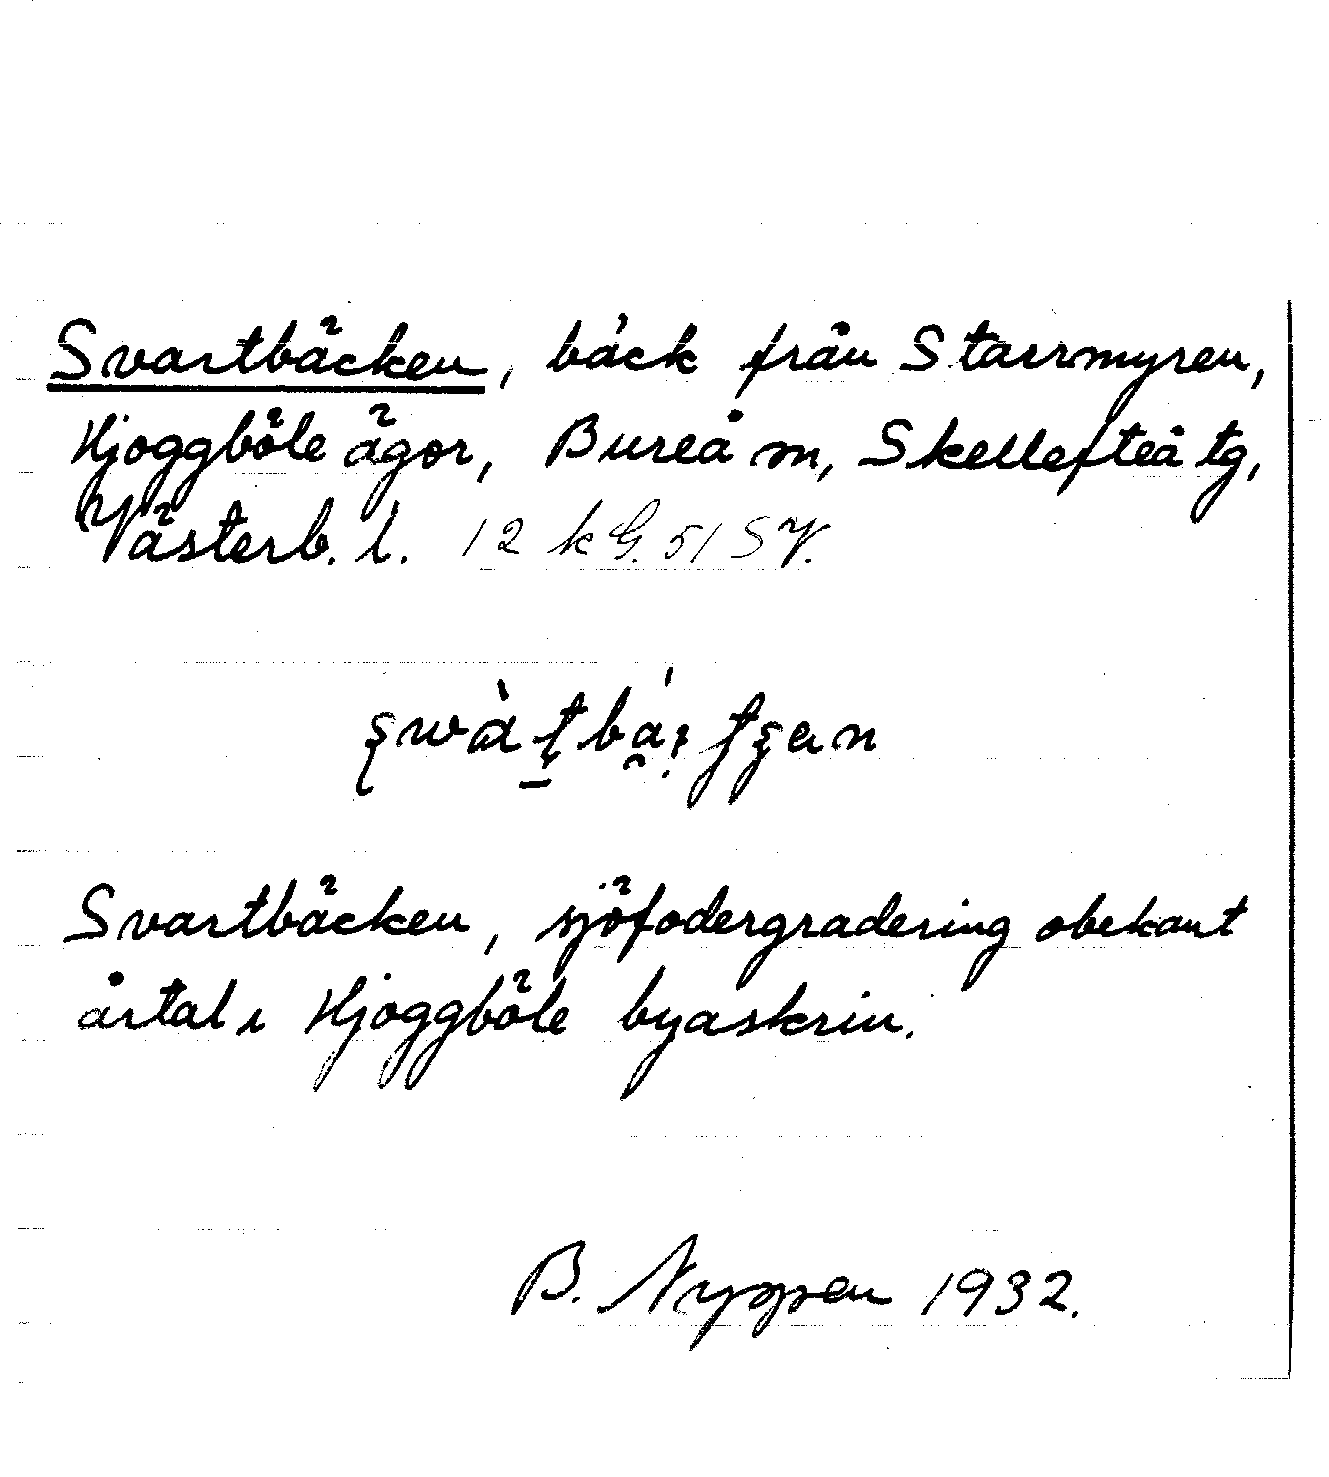 Svartbäcken, bäck från Starrmyren,
Hjoggböle ägor, Bureå m, Skellefteå tg,
Västerb. l. 12 kG. 51 SV.
Svartbäcken, sjöfodergradering obekant
årtal i Hjoggböle byaskrin.
B. 1932.